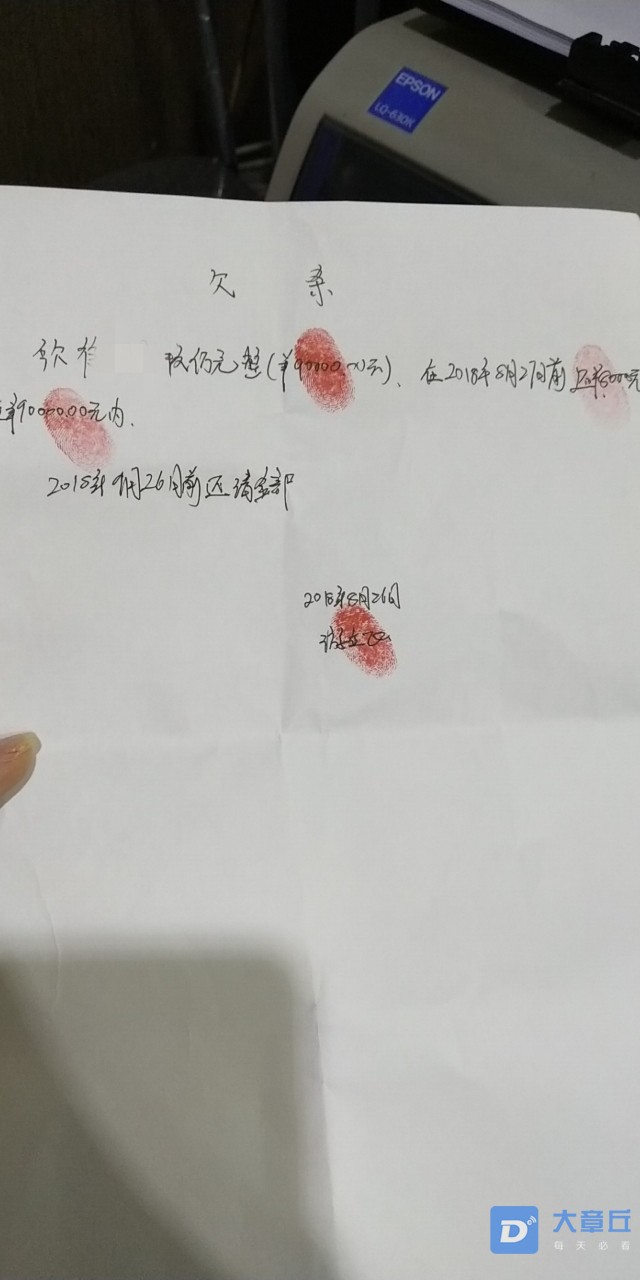 EPSON
LQ-630K
欠 条
欠 玖仟元整(￥90000.00元)、在2018年8月27日前还￥5000元
￥90000.00元内.
2018年9月26日前还清全部
2018年8月26日
大章丘
每天必看